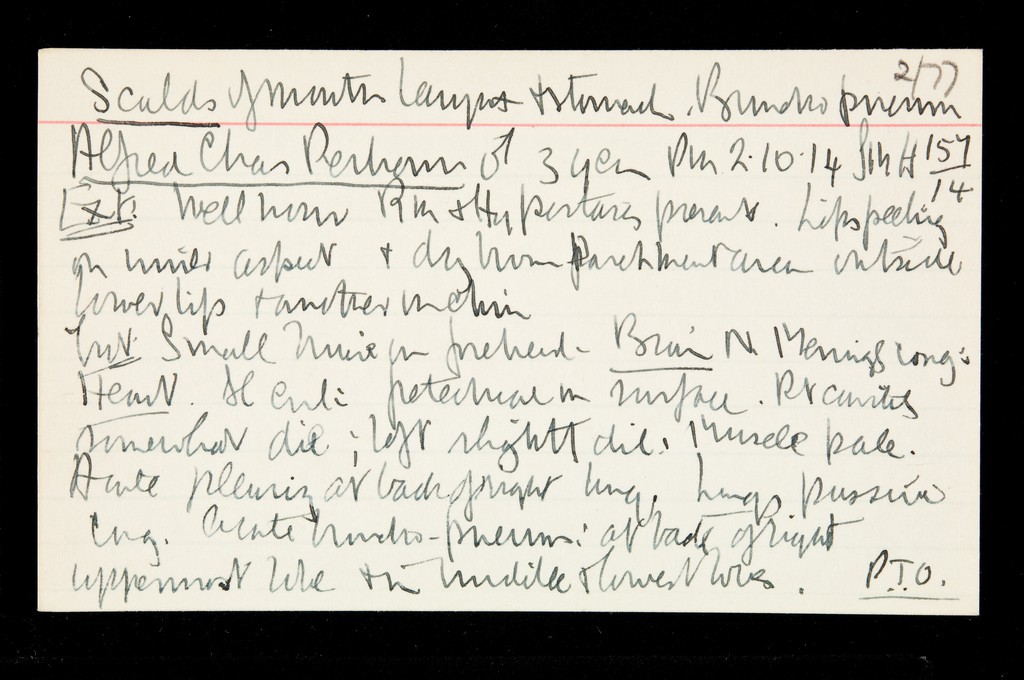 2/77
Scalds of mouth larynx + stomach. Broncho pneum
Alfred Chas ♂ 3 yea PM 2.10.14 157/14
Ext. Well nour RM + Hypostasis present. Lips peeling
on inner aspect + dry brown parchment area outside
lower lips + another on chin
Int: Small bruise on forehead - Brain N. Meninges cong:
Heart. petechiae on surface. Rt cavities
somewhat dil; left slightl dil: Muscle pale.
Acute pleurisy at back of right lung. Lungs passive
cong. Acute broncho-pneum: at back of right
uppermost lobe + in middle + lowest lobes. P.T.O.